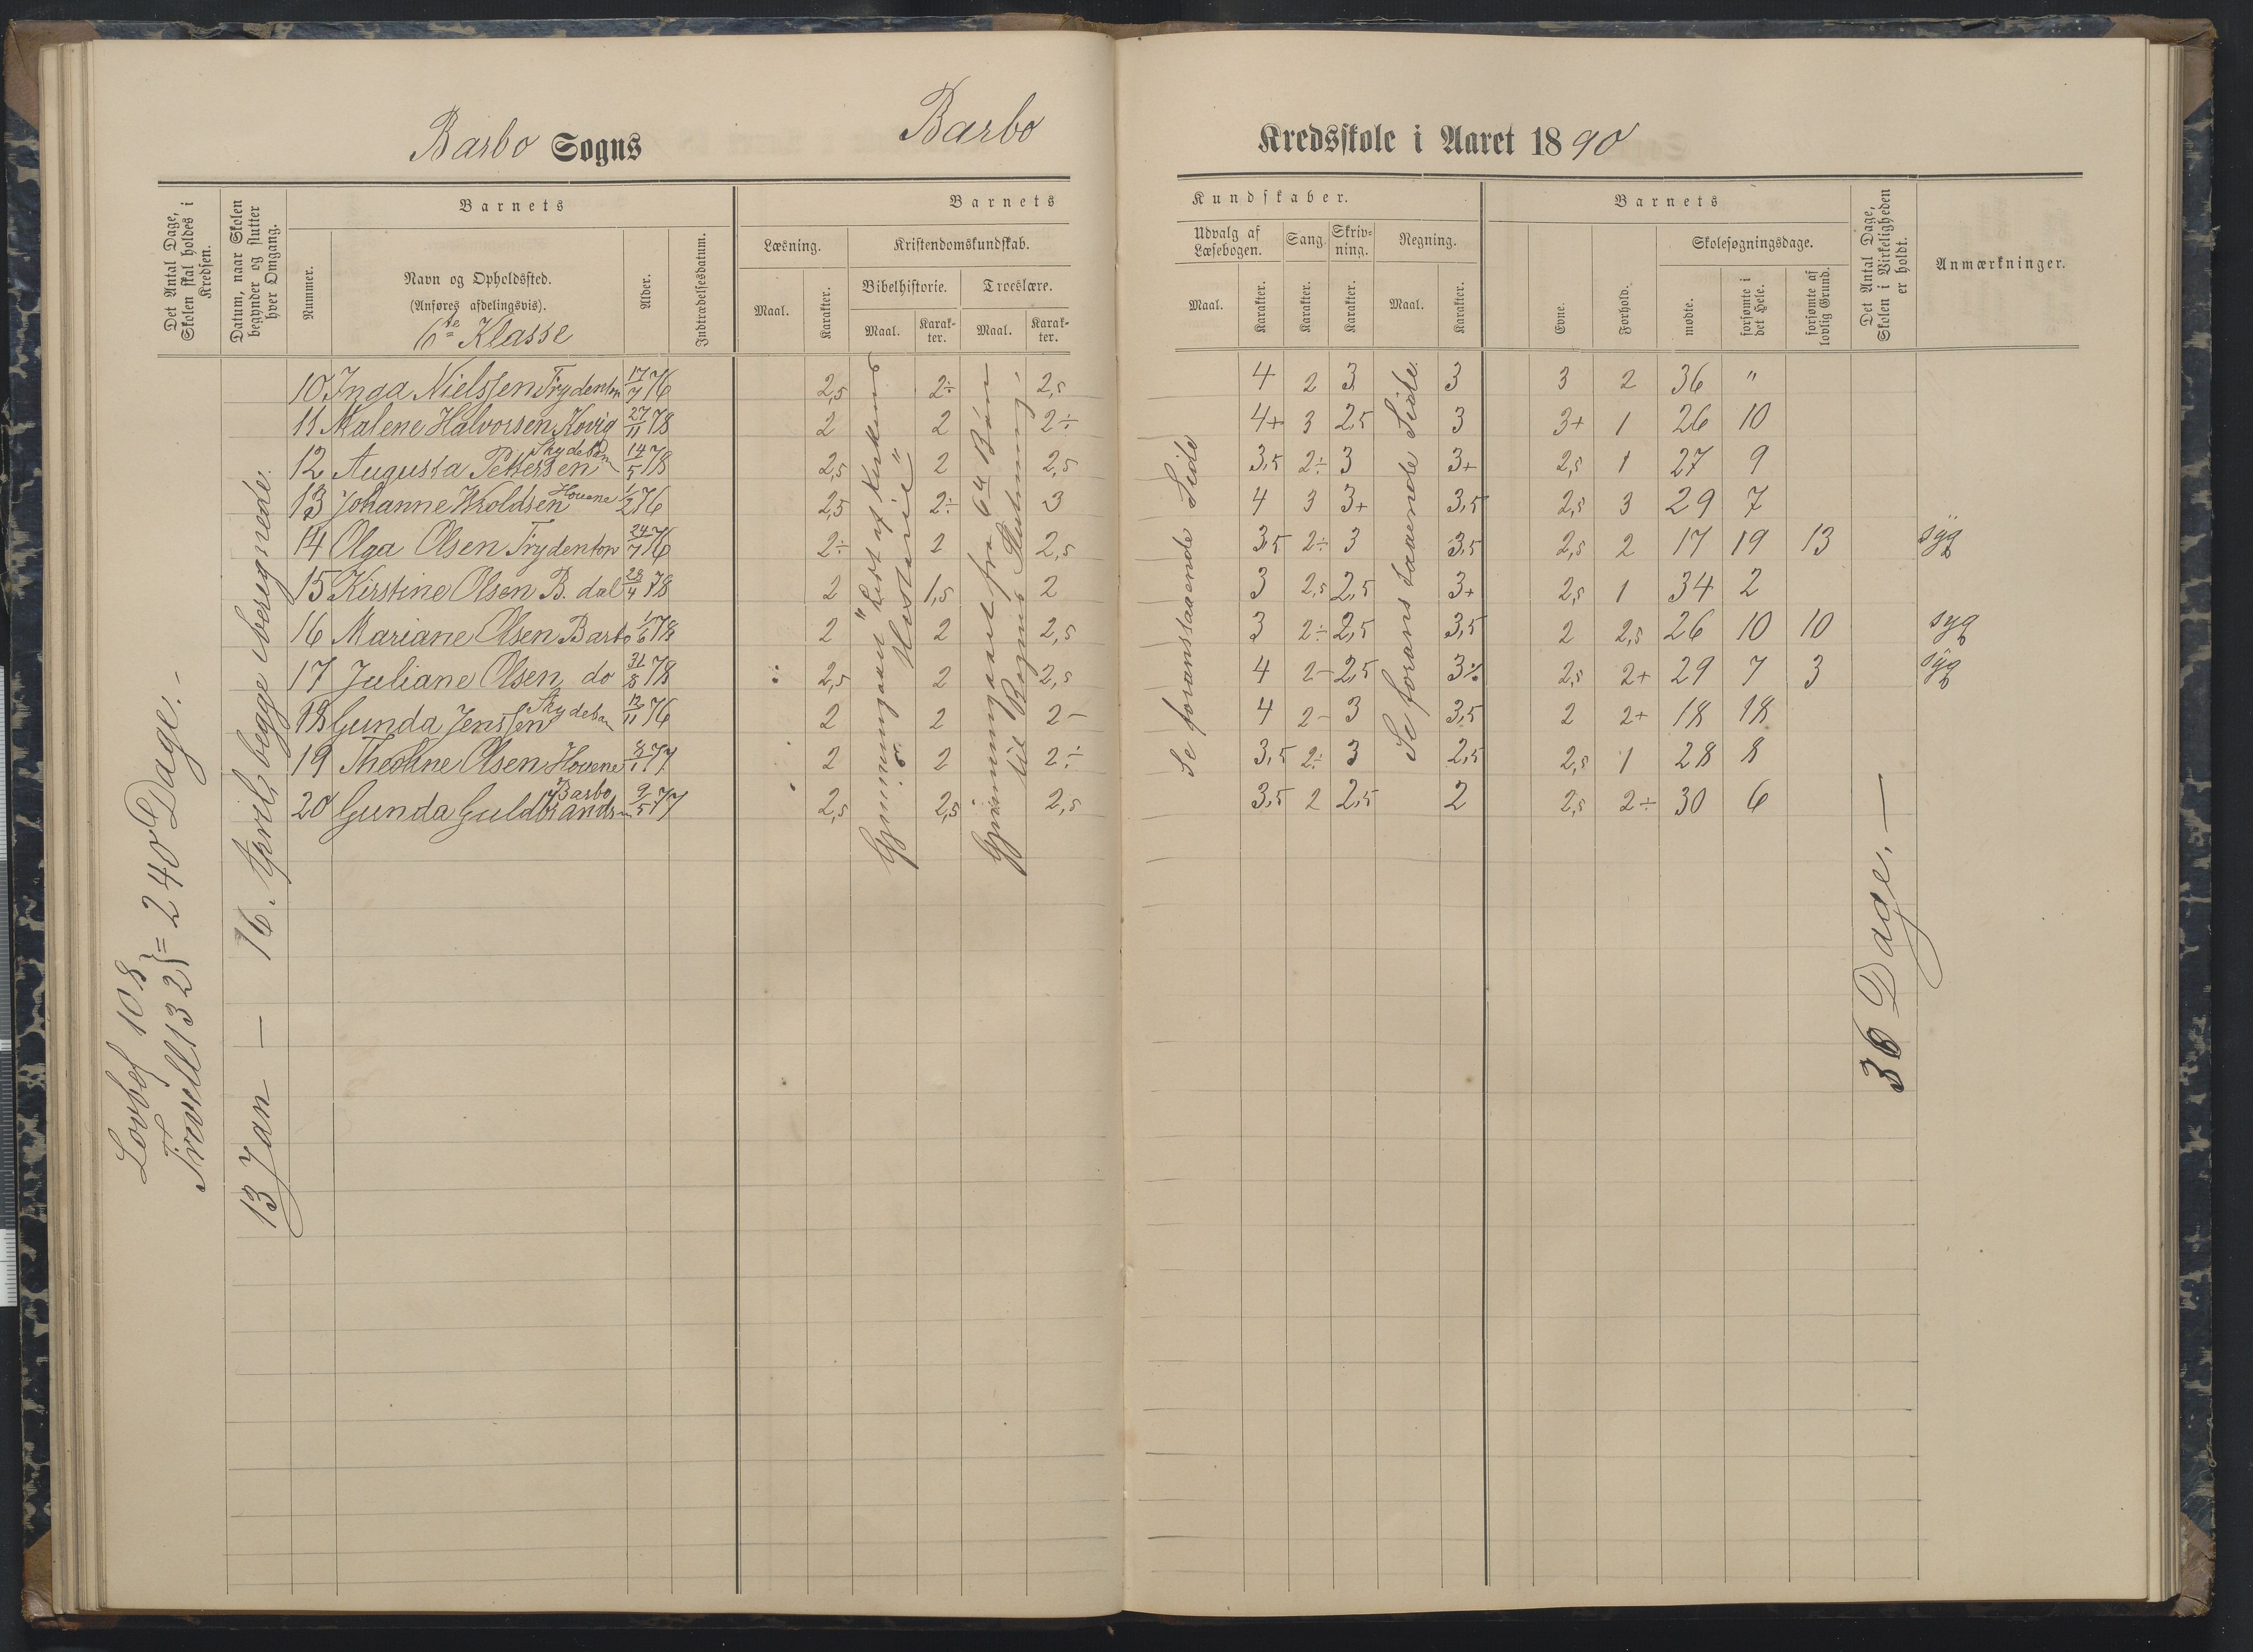 Barbo Sogns
Barbo
Kredsskole i Aaret 1890
Det Antal Dage, Skolen skal holdes i Kredsen.
Datum, naar Skolen begynder og slutter hver Omgang.
Barnets
Nummer.
Navn og Opholdssted.
(Anføres afdelingsvis).
6te Klasse
Alder.
Indtrædelsesdatum.
Barnets
Læsning.
Maal.
Karakter.
Kristendomskundskab.
Bibelhistorie.
Maal.
Karakter.
Troeslære.
Maal.
Karakter.
Kundskaber.
Udvalg af Læsebogen.
Maal.
Karakter.
Sang.
Karakter.
Skrivning.
Karakter.
Regning.
Maal.
Karakter.
Barnets
Evne.
Forhold.
Skolesøgningsdage.
mødte.
forsømte i det Hele.
forsømte af lovlig Grund.
Det Antal Dage, Skolen i Virkeligheden er holdt.
Anmærkninger.
10 Inga Nielssen Frydenton 17/7 76 2,5 2÷ 2,5 4 2 3 3 3 2 36 "
11 Malene Halvorsen Kovig 27/11 78 2 2 2÷ 4+ 3 2,5 3 3+ 1 26 10
12 Augusta Pettersen 14/5 78 2,5 2 2,5 3,5 2÷ 3 3+ 2,5 1 27 9
13 Johanne Wroldsen Houene 1/2 76 2,5 2÷ 3 4 3 3+ 3,5 2,5 3 29 7
14 Olga Olsen Frydenton 24/7 76 2÷ 2 2,5 3,5 2÷ 3 3,5 2,5 2 17 19 13 syg
15 Kirstine Olsen B. dal 28/4 78 2 1,5 2 3 2,5 2,5 3+ 2,5 1 34 2
16 Mariane Olsen Barbo 1/6 78 2 2 2,5 3 2÷ 2,5 3,5 2 2,5 26 10 10 syg
17 Juliane Olsen do 31/8 78 2,5 2 2,5 4 2- 2,5 3÷ 2,5 2+ 29 7 3 syg
18 Gunda Jenssen 12/11 76 2 2 2- 4 2- 3 3,5 2 2+ 18 18
19 Theoline Olsen Houene 8/1 77 2 2 2÷ 3,5 2÷ 3 2,5 2,5 1 28 8
20 Gunda Guldbrandsen Barbo 9/5 77 2,5 2,5 2,5 3,5 2 2,5 2 2,5 2÷ 30 6
Lovbef 108
Frivill 132 } = 240 Dage.-
13 Jan — 16. April, begge iberegnede.
Gjennemgaaet "Lidt af Kirkens Historie"
Gjennemgaaet fra 64 Bøn til Bogens Slutning.
Se foranstaaende Side
Se foranstaaende Side.
36 Dage.—